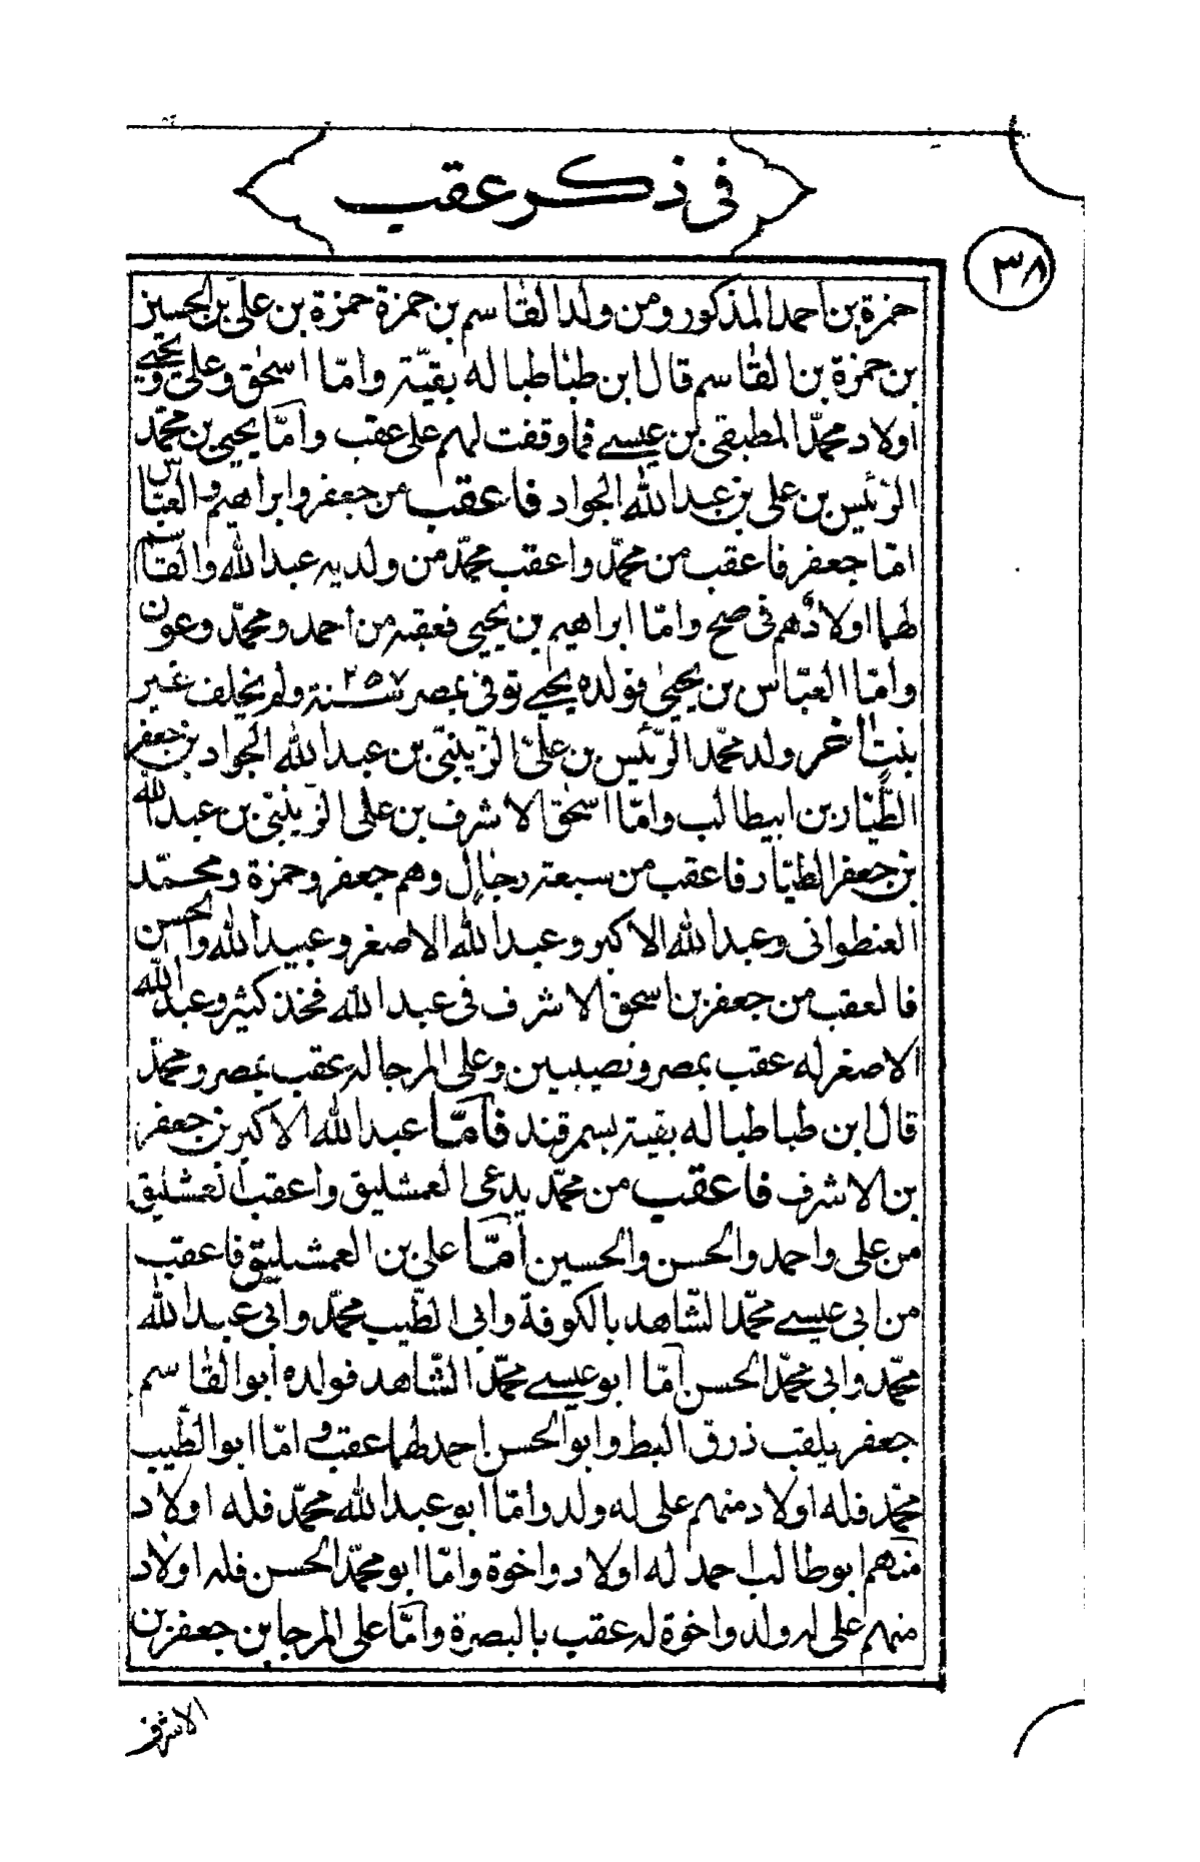 فى ذكر عقب
٣٨
حمزة بن أحمد المذكور ومن ولد القاسم بن حمزة حمزة بن علىّ بن الحسين
بن حمزة بن القاسم قال ابن طباطبا له بقيّة وامّا اسحٰق وعلى ويحيى
اولاد محمّد المطبقى بن عيسى فما وقفت لهم على عقب وأمّا يحيى بن محمّد
الرّئيس بن على بن عبد الله الجواد فاعقب من جعفر وابراهيم والعبّاس
امّا جعفر فاعقب من محمّد واعقب محمّد من ولديه عبد الله والقاسم
لهما اولاد هم فى صح وامّا ابراهيم بن يحيى فعقبه من أحمد ومحمّد وعون
وأمّا العبّاس بن يحيى فولده يحيى توفى بمصر سنة ٢٥٧ ولم يخلف غير
بنت اخر ولد محمّد الرّئيس بن علىّ الزّينبىّ بن عبد الله الجواد بن جعفر
الطّيّار بن ابيطالب وامّا اسحٰق الاشرف بن على الزّينبىّ بن عبد الله
بن جعفر الطيّار فاعقب من سبعة رجال وهم جعفر وحمزة ومحمّد
العنطوانى وعبد الله الاكبر وعبد الله الاصغر وعبيد الله والحسن
فالعقب من جعفر بن اسحق الاشرف فى عبد الله فخذ كثير وعبد الله
الاصغر له عقب بمصر ونصيبين وعلى المرجا له عقب بمصر ومحمّد
قال ابن طباطبا له بقية بسمرقند فأمّا عبد الله الاكبر بن جعفر
بن الاشرف فاعقب من محمّد يدعى العمشليق واعقب العمشليق
من على واحمد والحسن والحسين أمّا على بن العمشليق فاعقب
من ابى عيسى محمّد الشّاهد بالكوفة وابى الطّيب محمّد وابى عبد الله
محمّد وابى محمّد الحسن أمّا ابو عيسى محمّد الشّاهد فولده أبو القاسم
جعفر يلقب ذرق البط وابو الحسن احمد لهما عقب وامّا ابو الطّيب
محمّد فله اولاد منهم على له ولد وأمّا ابو عبد الله محمّد فله اولاد
منهم ابو طالب احمد له اولاد واخوة وامّا ابو محمّد الحسن فله اولاد
منهم على له ولد واخوة له عقب بالبصرة وأمّا على المرجا بن جعفر بن
الاشرف